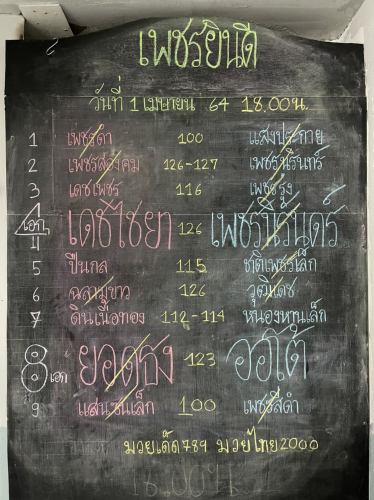 เพชรยินดี
วันที่ 1 เมษายน 64 18.00 น.
1 เพชรดำ 100 แสงประกาย
2 เพชรสงคม 126-127 เพชรนรินทร์
3 เดชเพชร 116 เพชรรุ่ง
4 เอก เดชไชยา 126 เพชรนิรันดร์
5 ปืนกล 115 ชาติเพชรเล็ก
6 ฉลามขาว 126 วุฒิเดช
7 ดินเนื้อทอง 112-114 หนองหานเล็ก
8 เอก ยอดธง 123 ออโต้
9 แสนซนเล็ก 100 เพชรสีดำ
มวยเด็ด789 มวยไทย2000